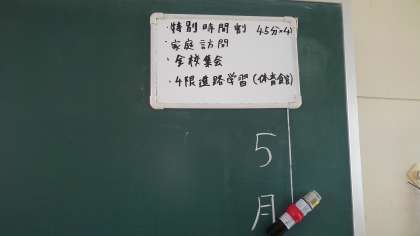 ・特別時間割 45分×4
・家庭訪問
・全校集会
・4限進路学習(体育館)
5
月